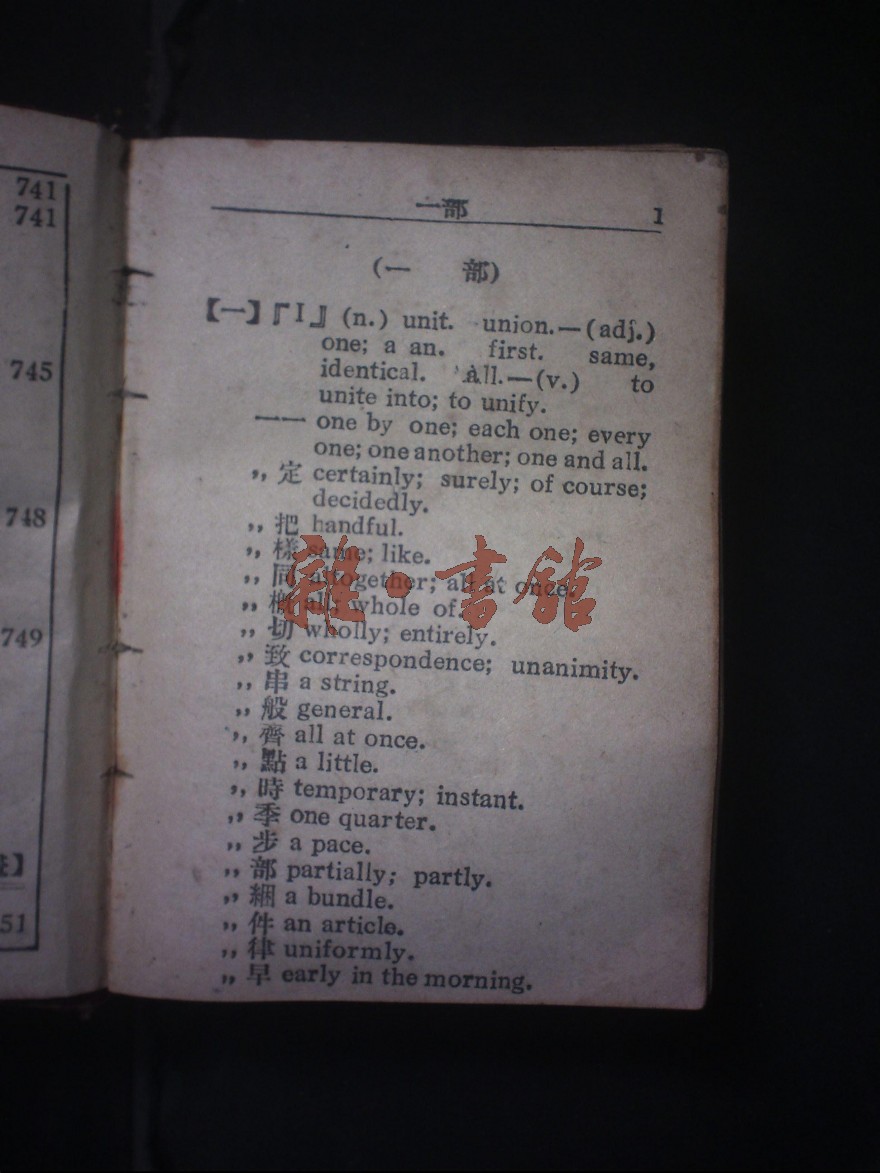 741
741
745
748
749
】
51
一部 1
(一 部)
【一】『I』 (n.) unit. union.—(adj.)
one; a an. first. same,
identical. All.—(v.) to
unite into; to unify.
一一 one by one; each one; every
one; one another; one and all.
,, 定 certainly; surely; of course;
decidedly.
,, 把 handful.
,, 樣 same; like.
,, 同 altogether; all at once.
,, 概 all; whole of.
,, 切 wholly; entirely.
,, 致 correspondence; unanimity.
,, 串 a string.
,, 般 general.
,, 齊 all at once.
,, 點 a little.
,, 時 temporary; instant.
,, 季 one quarter.
,, 步 a pace.
,, 部 partially; partly.
,, 綑 a bundle.
,, 件 an article.
,, 律 uniformly.
,, 早 early in the morning.
雜·書館